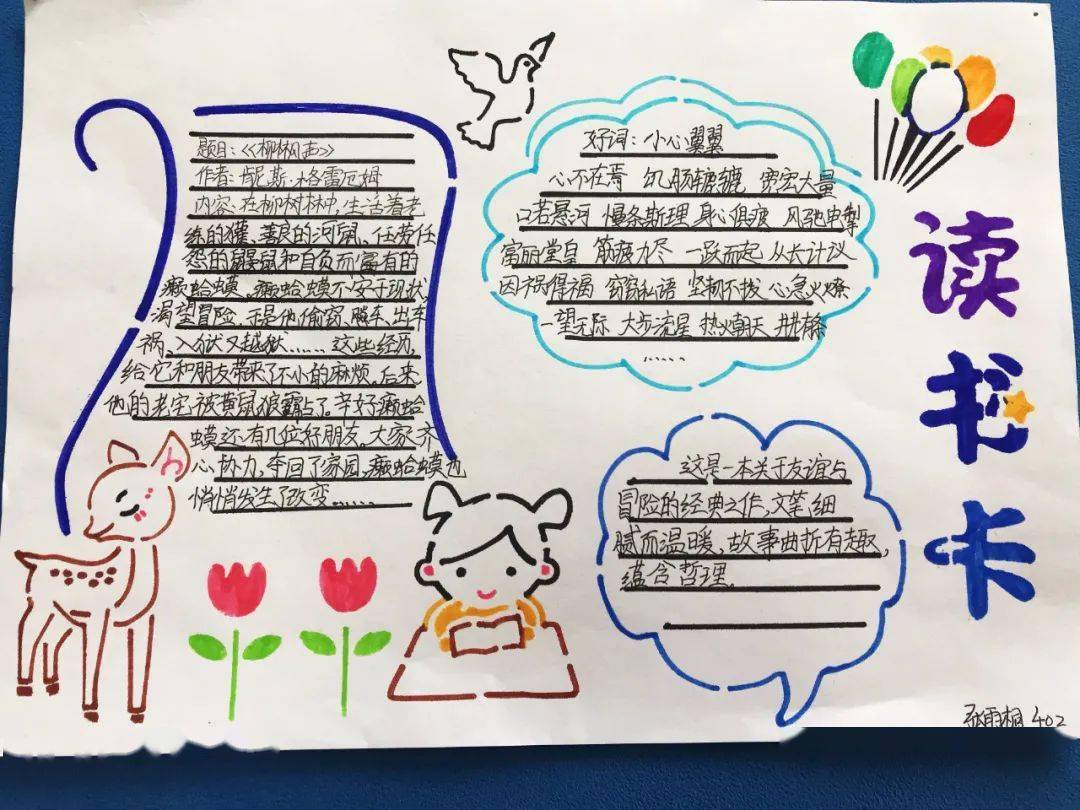 题目:《柳林风声》
作者:肯尼斯·格雷厄姆
内容:在柳树林中,生活着老
练的獾、善良的河鼠、任劳任
怨的鼹鼠和自负而富有的
癞蛤蟆。癞蛤蟆不安于现状,
渴望冒险、于是他偷窃、飚车、出车
祸、入狱又越狱……这些经历
给它和朋友带来了不小的麻烦。后来
他的老宅被黄鼠狼霸占了。幸好癞蛤
蟆还有几位好朋友。大家齐
心协力,夺回了家园,癞蛤蟆也
悄悄发生了改变……
好词:小心翼翼
心不在焉 饥肠辘辘 宽宏大量
口若悬河 慢条斯理 身心俱疲 风驰电掣
富丽堂皇 筋疲力尽 一跃而起 从长计议
因祸得福 窃窃私语 坚韧不拔 心急火燎
一望无际 大步流星 热火朝天 井井有条
……
这是一本关于友谊与
冒险的经典之作,文笔细
腻而温暖,故事曲折有趣,
蕴含哲理。
读书卡
张雨桐 402